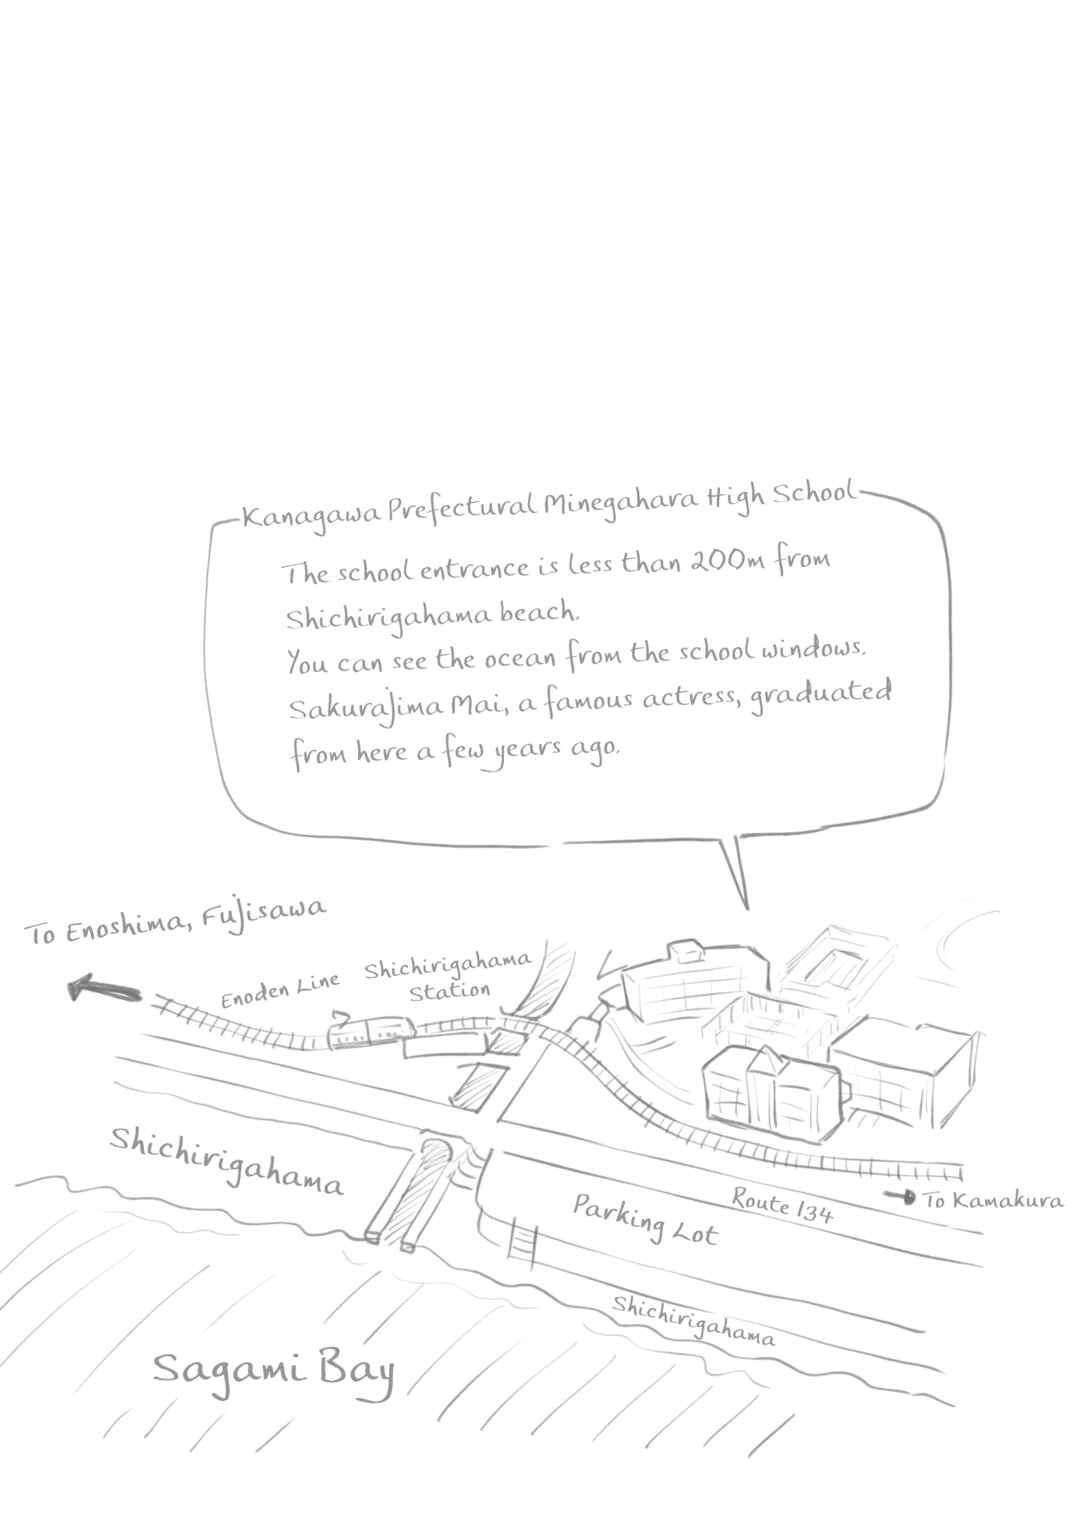 Kanagawa Prefectural Minegahara High School
The school entrance is less than 200m from
Shichirigahama beach.
You can see the ocean from the school windows.
Sakurajima Mai, a famous actress, graduated
from here a few years ago.
To Enoshima, Fujisawa
Enoden Line
Shichirigahama
Station
Shichirigahama
Parking Lot
Route 134
To Kamakura
Shichirigahama
Sagami Bay